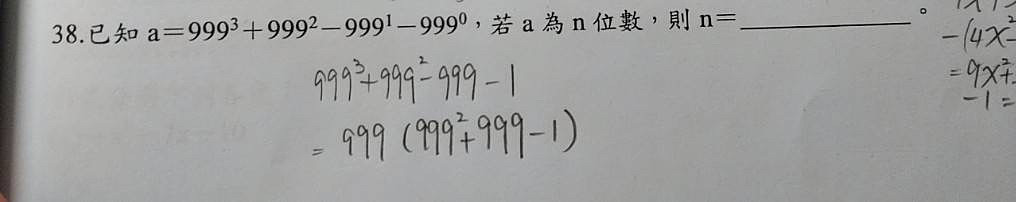 38.已知 a=999³+999²−999¹−999⁰，若 a 為 n 位數，則 n=__________。
999³+999²-999-1
= 999 (999²+999-1)
-(4x²-
=9x²+
-1=